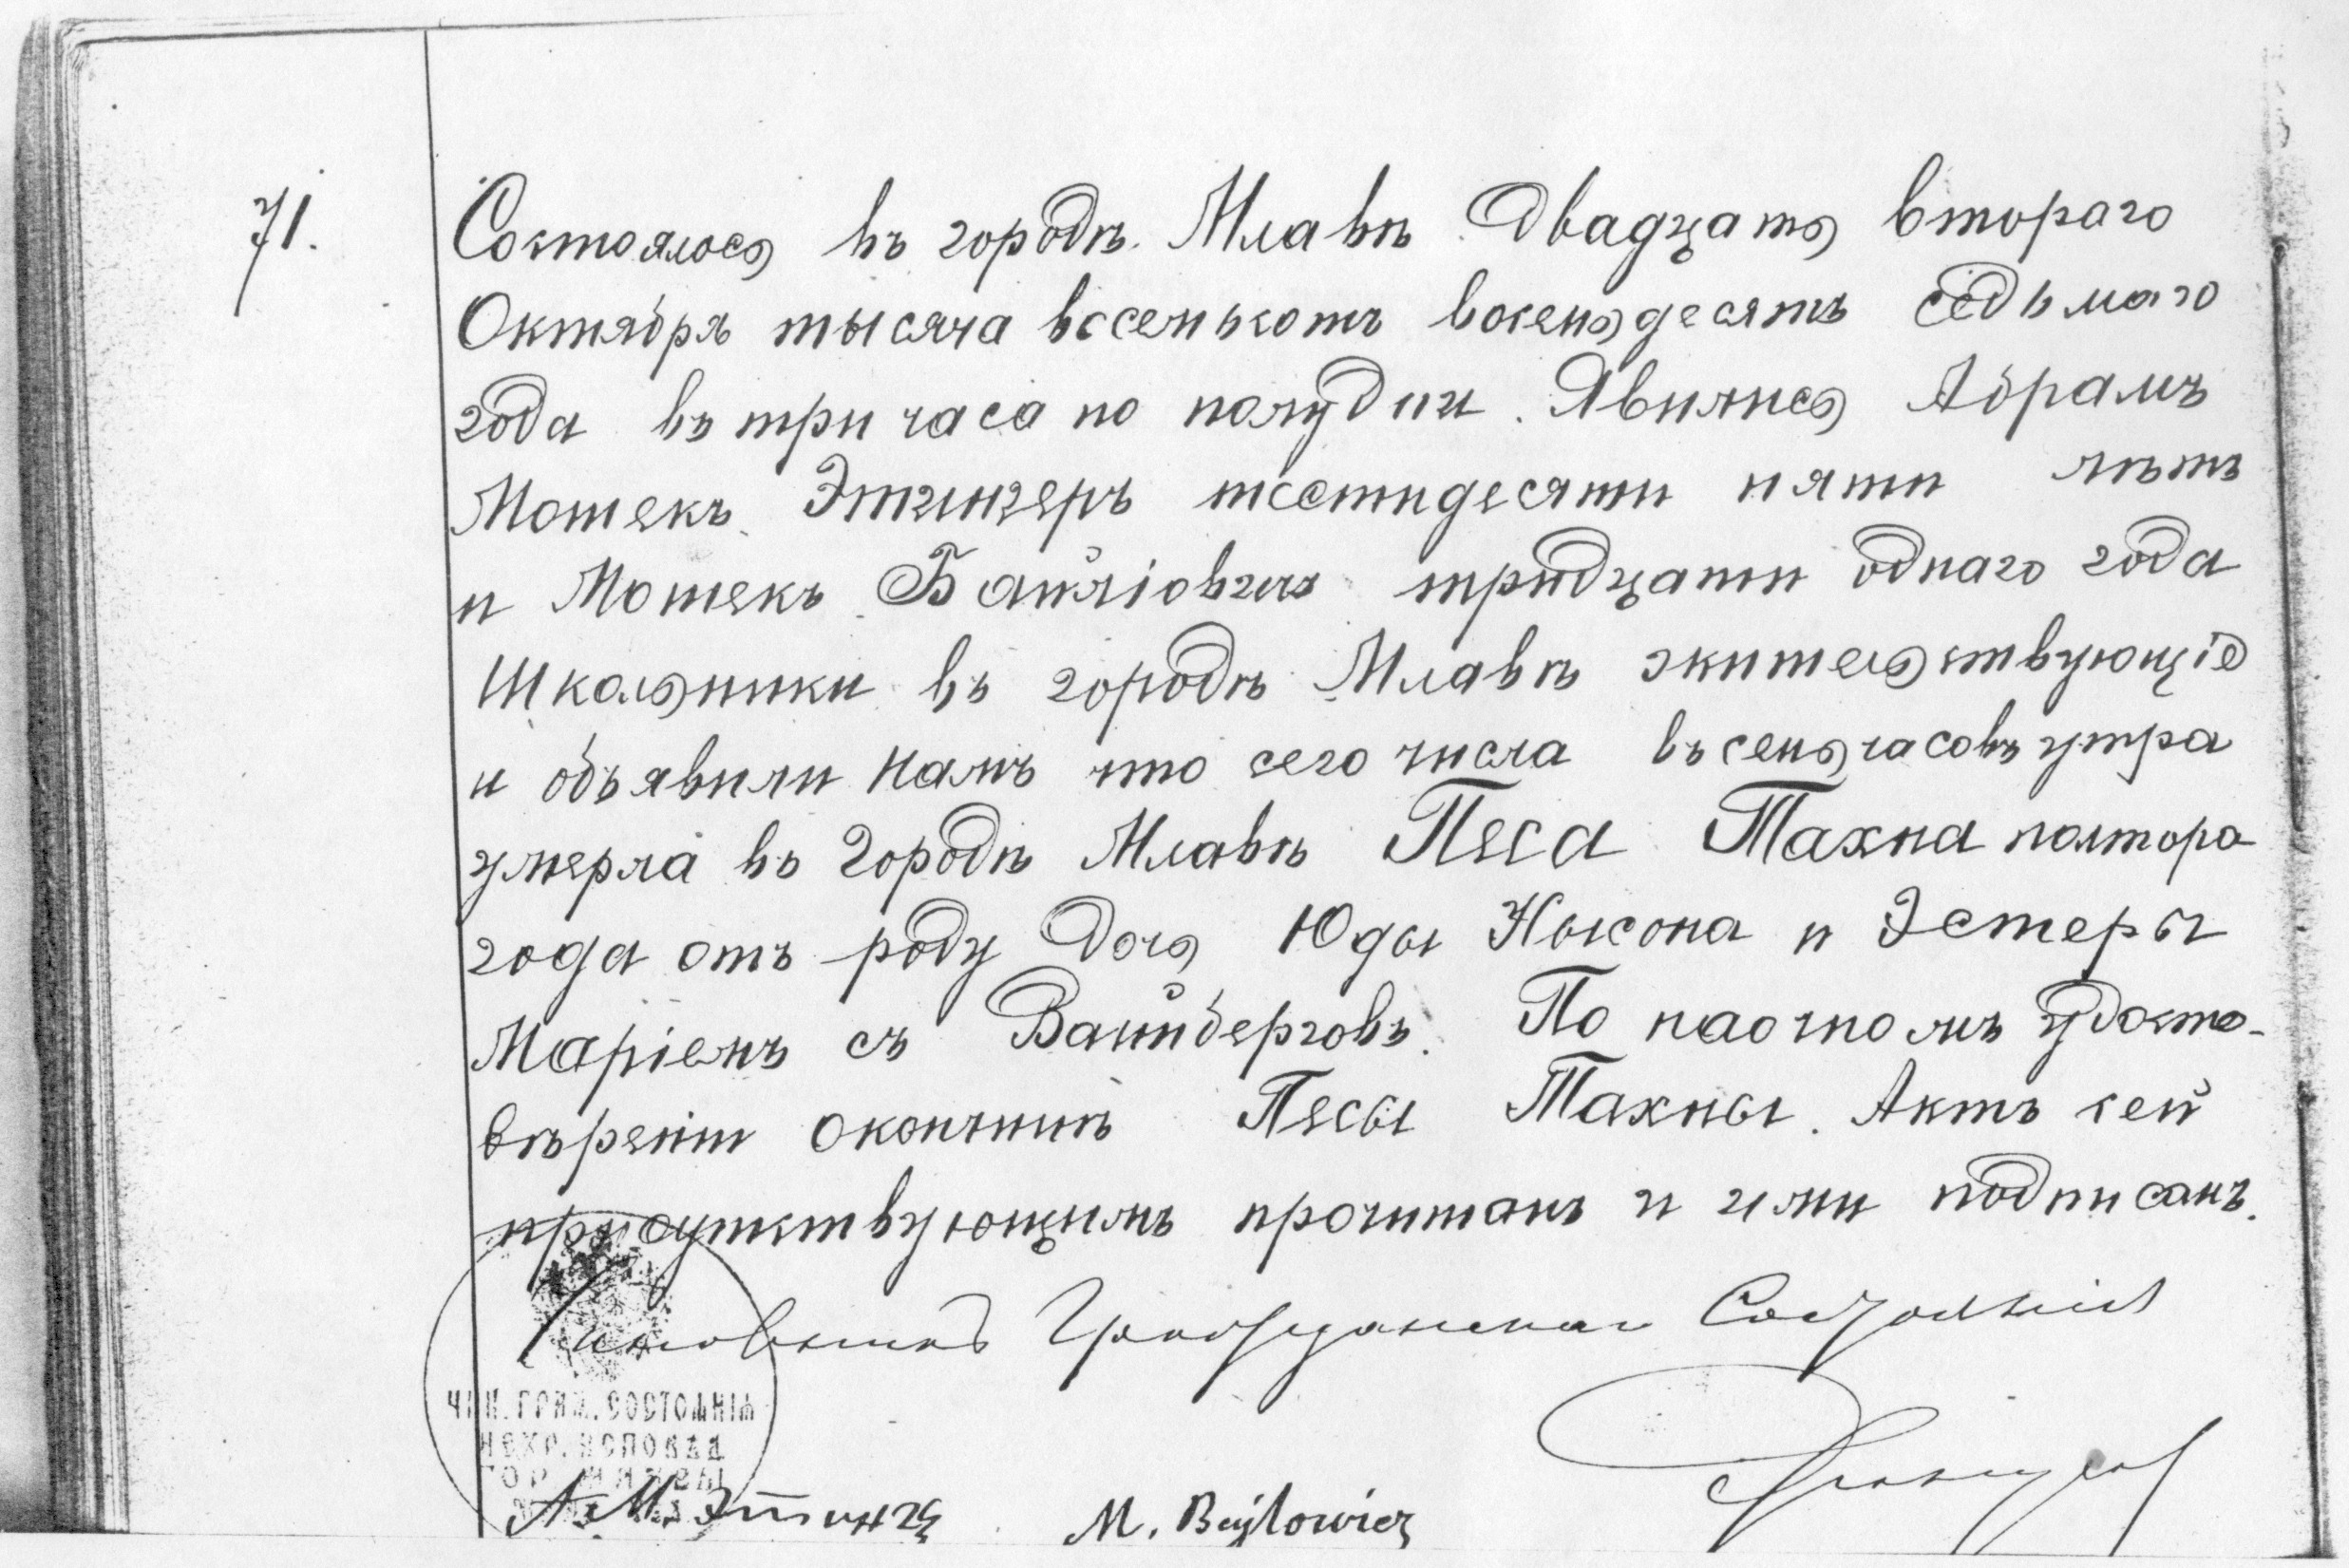 71.
Состоялось въ городѣ Млавѣ Двадцать втораго
Октября тысяча восемьсотъ восемьдесятъ седьмаго
года въ три часа по полудни. Явились Абрамъ
Мошекъ Этингеръ шестидесяти пяти лѣтъ
и Мошекъ Байліовичъ тридцати однаго года
Школьники въ городѣ Млавѣ жительствующіе
и объявили намъ что сего числа въ семь часовъ утра
умерла въ городѣ Млавѣ Песа Тахна полтора
года отъ роду дочь Юды Нысона и Эстеры
Маріемъ съ Вайнберговъ. По наочномъ удосто-
вѣреніи окончинѣ Песы Тахны. Актъ сей
присутствующимъ прочитанъ и ими подписанъ.
Чиновникъ Гражданскаго Состоянія
ЧИН. ГРАЖ. СОСТОЯНІЯ
НЕХР. ИСПОВѢД
ГОР. МЛАВЫ
А. М. Этингг M. Bajlowicz